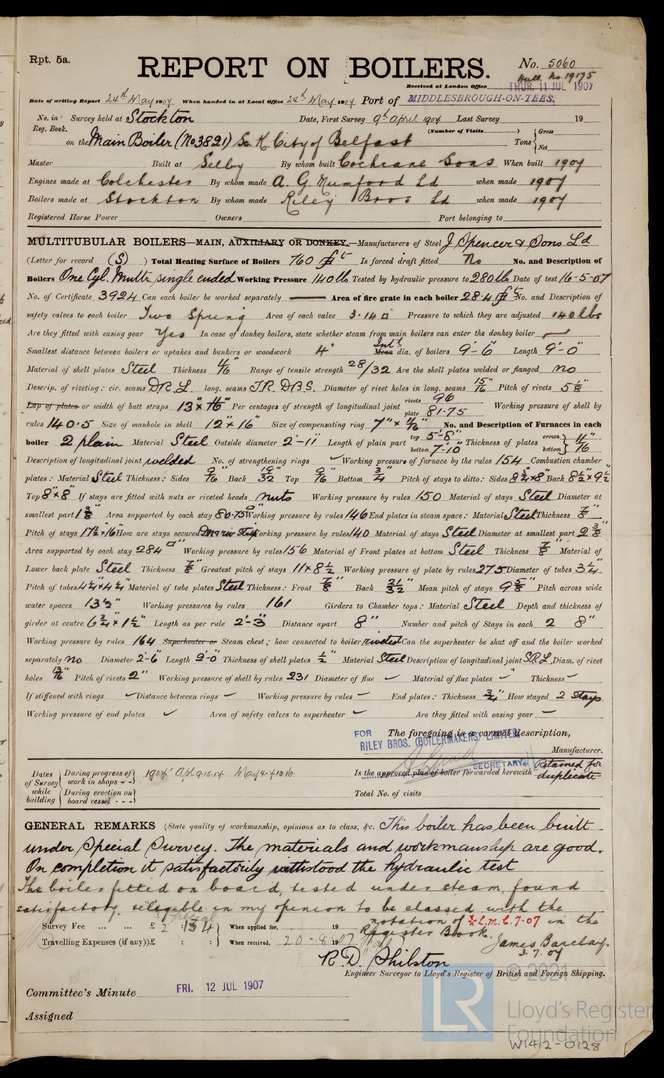 Rpt. 5a.
REPORT ON BOILERS.
No. 5060
Hull No. 19175
Received at London Office THUR. 11 JUL 1907
Date of writing Report 24th May 1907 When handed in at Local Office 24th May 1907 Port of MIDDLESBROUGH-ON-TEES.
No. in Survey held at Stockton Date, First Survey 9th April 1907 Last Survey 19
Reg. Book. (Number of Visits ) Gross
on the Main Boiler (No 3821) S.K. City of Belfast Tons Net
Master Built at Selby By whom built Cochrane Sons When built 1907
Engines made at Colchester By whom made A. G. Mumford Ld when made 1907
Boilers made at Stockton By whom made Riley Bros Ld when made 1907
Registered Horse Power Owners Port belonging to
MULTITUBULAR BOILERS—MAIN, AUXILIARY OR DONKEY.—Manufacturers of Steel J. Spencer & Sons Ld
(Letter for record (S) ) Total Heating Surface of Boilers 760 ft Is forced draft fitted No No. and Description of
Boilers One Cyl. Multr single ended Working Pressure 140 lb Tested by hydraulic pressure to 280 lb Date of test 16-5-07
No. of Certificate 3924 Can each boiler be worked separately — Area of fire grate in each boiler 28.4 ft No. and Description of
safety valves to each boiler Two Spring Area of each valve 3.14 Pressure to which they are adjusted 140 lbs
Are they fitted with easing gear Yes In case of donkey boilers, state whether steam from main boilers can enter the donkey boiler —
Smallest distance between boilers or uptakes and bunkers or woodwork 4" Mean Intl dia. of boilers 9'-6" Length 9'-0"
Material of shell plates Steel Thickness 11/16" Range of tensile strength 28/32 Are the shell plates welded or flanged No
Descrip. of riveting: cir. seams DR L. long. seams TR. DBS. Diameter of rivet holes in long. seams 15/16" Pitch of rivets 5 5/8"
Lap of plates or width of butt straps 13" × Per centages of strength of longitudinal joint rivets 96 plate 81.75 Working pressure of shell by
rules 140.5 Size of manhole in shell 12 × 16" Size of compensating ring 7" × 11/16" No. and Description of Furnaces in each
boiler 2 plain Material Steel Outside diameter 2'-11" Length of plain part top 5'-8" bottom 7'-10" Thickness of plates crown 11/16" bottom
Description of longitudinal joint welded No. of strengthening rings — Working pressure of furnace by the rules 154 Combustion chamber
plates: Material Steel Thickness: Sides 9/16" Back 19/32" Top 9/16" Bottom 3/4" Pitch of stays to ditto: Sides 8 3/4" × 8" Back 8 1/2" × 9 1/2"
Top 8" × 8 If stays are fitted with nuts or riveted heads nuts Working pressure by rules 150 Material of stays Steel Diameter at
smallest part 1 3/8" Area supported by each stay 80.75 Working pressure by rules 146 End plates in steam space: Material Steel Thickness 7/8"
Pitch of stays 17 1/2" × 16" How are stays secured Working pressure by rules 140 Material of stays Steel Diameter at smallest part 2 3/8"
Area supported by each stay 284 Working pressure by rules 156 Material of Front plates at bottom Steel Thickness 7/8" Material of
Lower back plate Steel Thickness 7/8" Greatest pitch of stays 11 × 8 1/2 Working pressure of plate by rules 275 Diameter of tubes 3 1/4"
Pitch of tubes 4 1/2" × 4 1/4" Material of tube plates Steel Thickness: Front 7/8" Back 21/32" Mean pitch of stays 9 5/8" Pitch across wide
water spaces 13 1/2" Working pressures by rules 161 Girders to Chamber tops: Material Steel Depth and thickness of
girder at centre 6 3/4" × 1 1/2" Length as per rule 2'-3" Distance apart 8" Number and pitch of Stays in each 2 8"
Working pressure by rules 164 Superheater or Steam chest; how connected to boiler riveted Can the superheater be shut off and the boiler worked
separately No Diameter 2'-6" Length 2'-0" Thickness of shell plates 1/2" Material Steel Description of longitudinal joint S.R.L. Diam. of rivet
holes 13/16" Pitch of rivets 2" Working pressure of shell by rules 231 Diameter of flue — Material of flue plates — Thickness —
If stiffened with rings — Distance between rings — Working pressure by rules — End plates: Thickness 3/4" How stayed 2 Stays
Working pressure of end plates — Area of safety valves to superheater — Are they fitted with easing gear —
FOR The foregoing is a correct description,
RILEY BROS. (BOILERMAKERS) LIMITED
SECRETARY. Manufacturer.
Dates of Survey while building During progress of work in shops - - 1907 Apl. 9.10.14 May 4.7.10.16 Is the approved plan of boiler forwarded herewith Retained for duplicate
During erection on board vessel - - - Total No. of visits
GENERAL REMARKS (State quality of workmanship, opinions as to class, &c. This boiler has been built
under Special Survey. The materials and workmanship are good.
On completion it satisfactorily withstood the hydraulic test
The boiler fitted on board, tested under steam, found
satisfactory & eligible in my opinion to be classed with the
notation of L.M.C. 7.07 in the
Register Book. James Barclay.
3.7.07
Survey Fee ... ... £ 2 : 13 4 When applied for, 19
Travelling Expenses (if any) £ : : When received, 20-8-07
R. D. Shilston
Engineer Surveyor to Lloyd's Register of British and Foreign Shipping.
Committee's Minute FRI. 12 JUL 1907
Assigned
© 2021
LR
Lloyd's Register
Foundation
W1412-0128